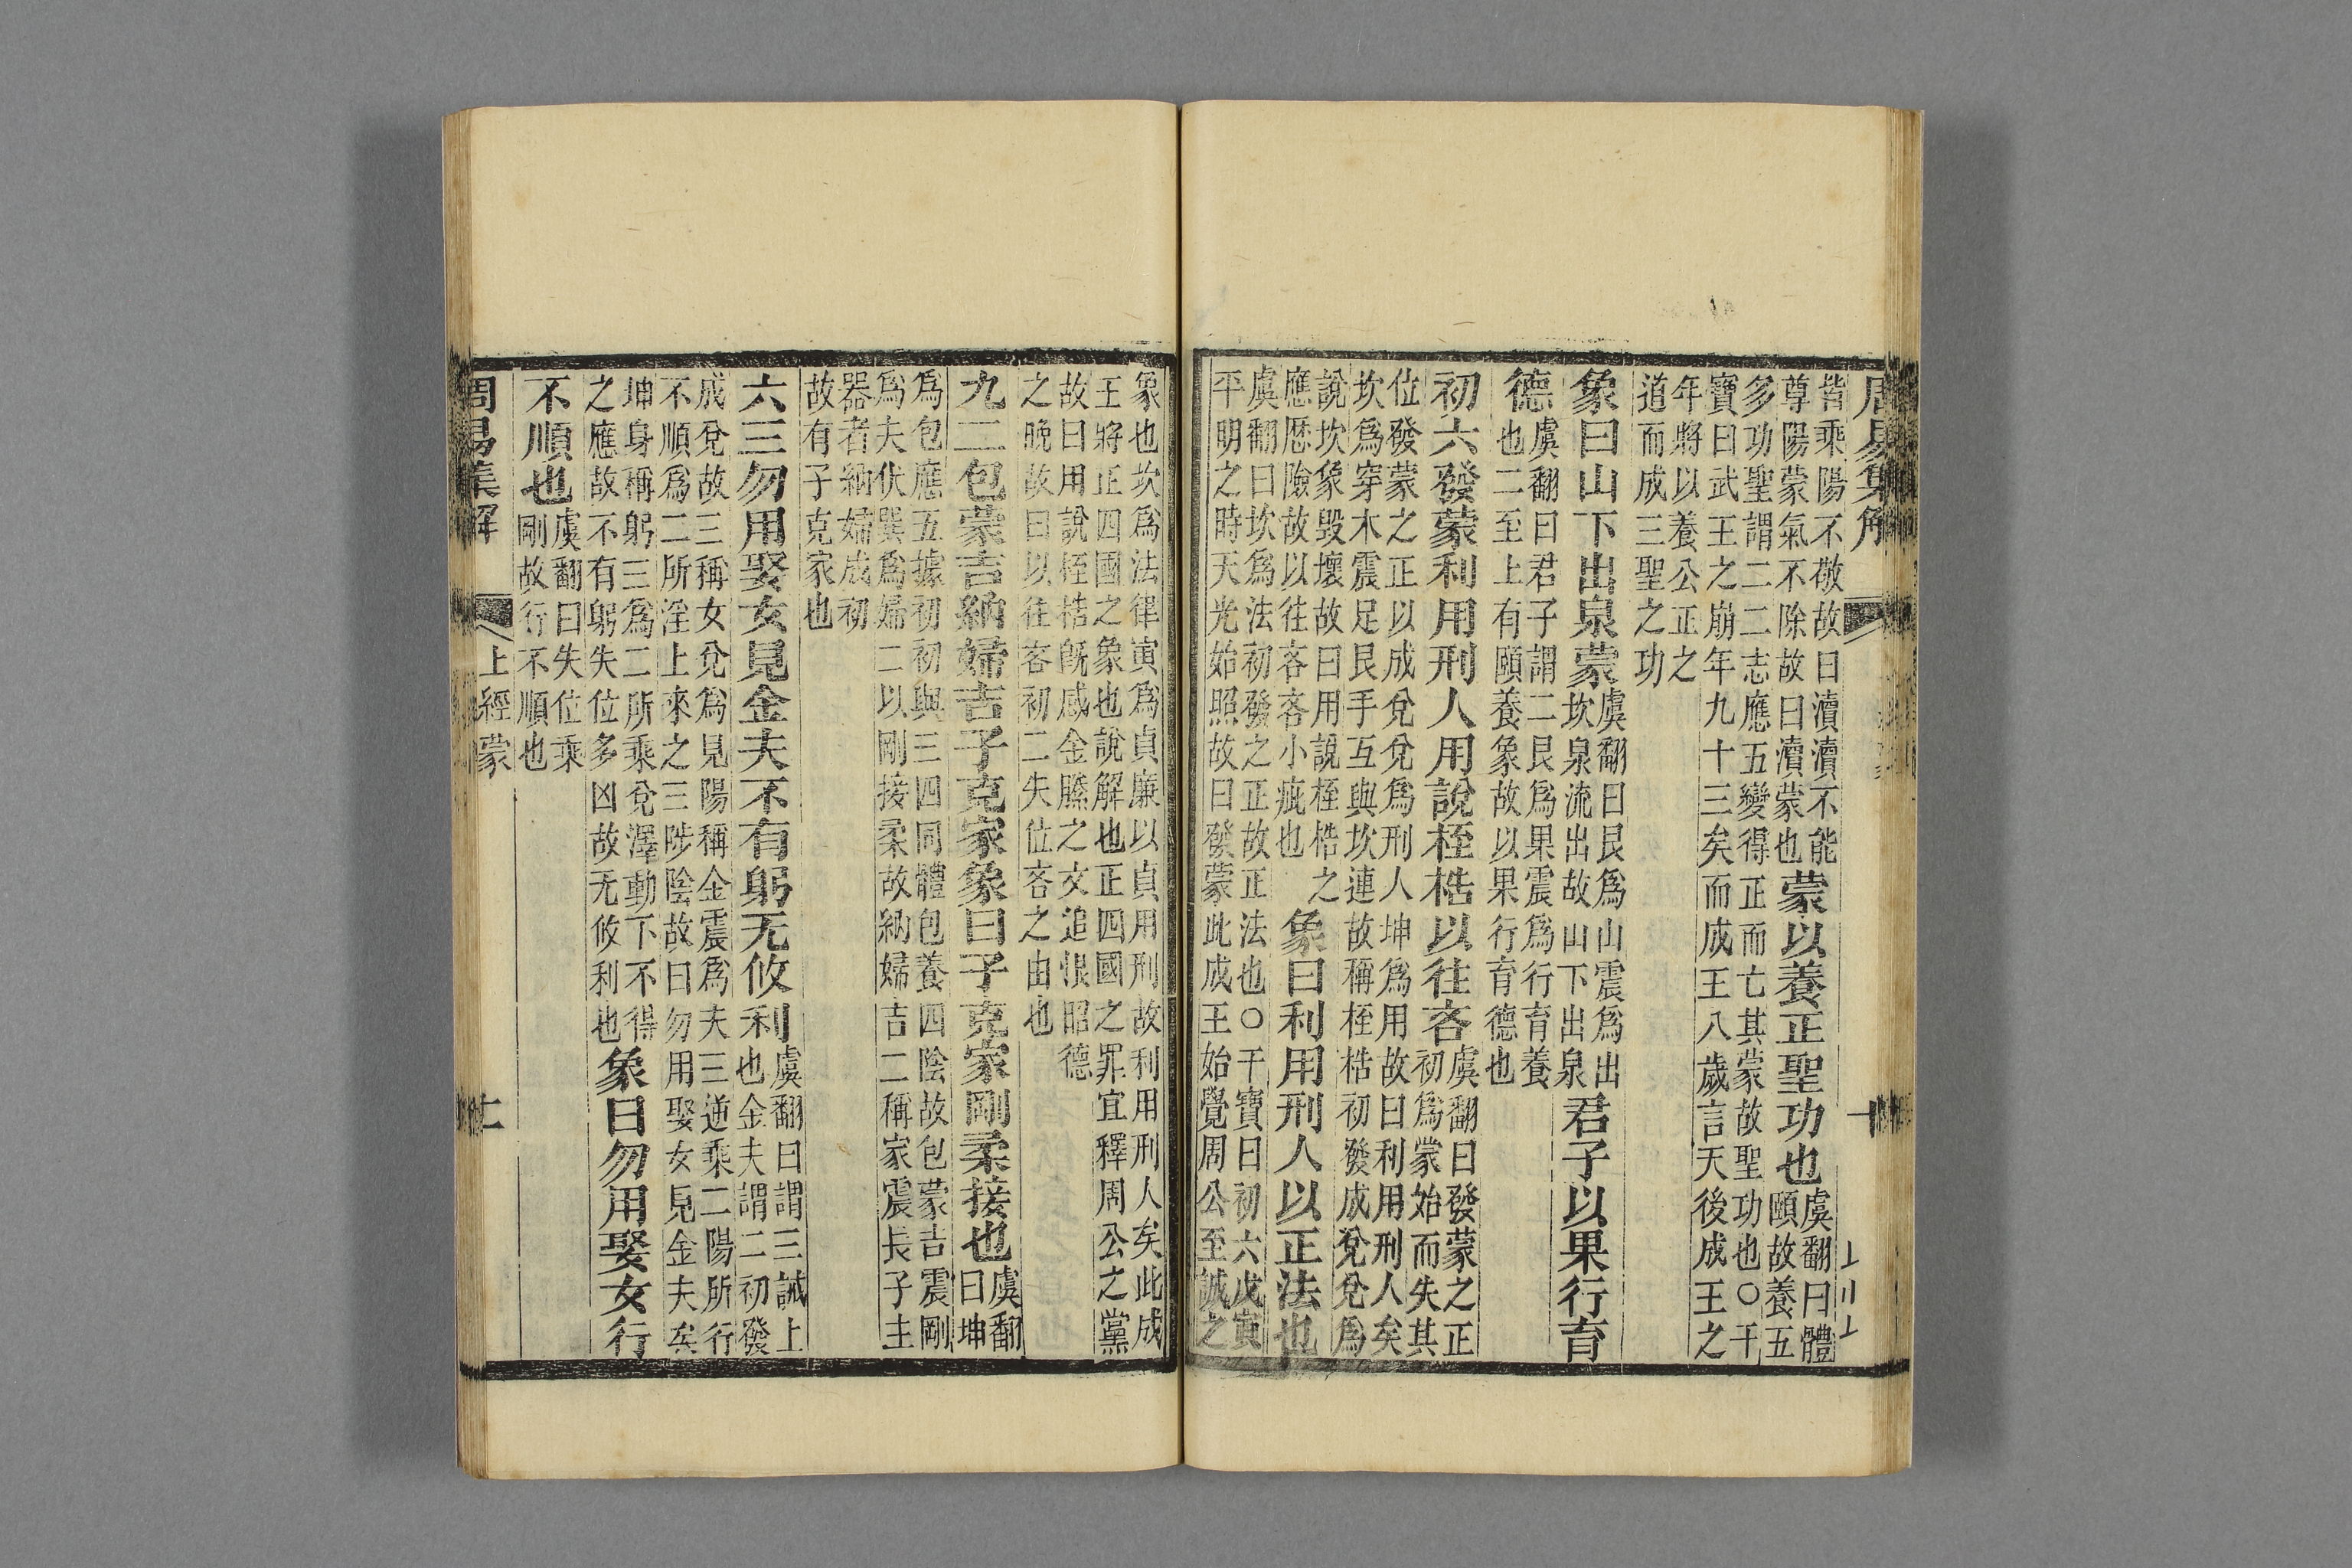 周易集解
皆乘陽不敬故曰瀆瀆不能
尊陽蒙氣不除故曰瀆蒙也蒙以養正聖功也虞翻曰體
頤故養五
多功聖謂二二志應五變得正而亡其蒙故聖功也○干
寶曰武王之崩年九十三矣而成王八歲言天後成王之
年將以養公正之
道而成三聖之功
象曰山下出泉蒙虞翻曰艮爲山震爲出
坎泉流出故山下出泉君子以果行育
德虞翻曰君子謂二艮爲果震爲行育養
也二至上有頤養象故以果行育德也
初六發蒙利用刑人用說桎梏以往吝虞翻曰發蒙之正
初爲蒙始而失其
位發蒙之正以成兌兌爲刑人坤爲用故曰利用刑人矣
坎爲穿木震足艮手互與坎連故稱桎梏初發成兌兌爲
說坎象毀壞故曰用說桎梏之
應歴險故以往吝吝小疵也象曰利用刑人以正法也
虞翻曰坎爲法初發之正故正法也○干寶曰初六戊寅
平明之時天光始照故曰發蒙此成王始覺周公至誠之
象也坎爲法律寅爲貞廉以貞用刑故利用刑人矣此成
王將正四國之象也說解也正四國之罪宜釋周公之黨
故曰用說桎梏既感金縢之文追恨昭德
之晩故曰以往吝初二失位吝之由也
九二包蒙吉納婦吉子克家象曰子克家剛柔接也虞翻
曰坤
爲包應五據初初與三四同體包養四陰故包蒙吉震剛
爲夫伏巽爲婦二以剛接柔故納婦吉二稱家震長子主
器者納婦成初
故有子克家也
六三勿用娶女見金夫不有躬无攸利虞翻曰謂三誡上
也金夫謂二初發
成兌故三稱女兌爲見陽稱金震爲夫三逆乘二陽所行
不順爲二所淫上來之三陟陰故曰勿用娶女見金夫矣
坤身稱躬三爲二所乘兌澤動下不得
之應故不有躬失位多凶故无攸利也象曰勿用娶女行
不順也虞翻曰失位乘
剛故行不順也
周易集解 上經 蒙